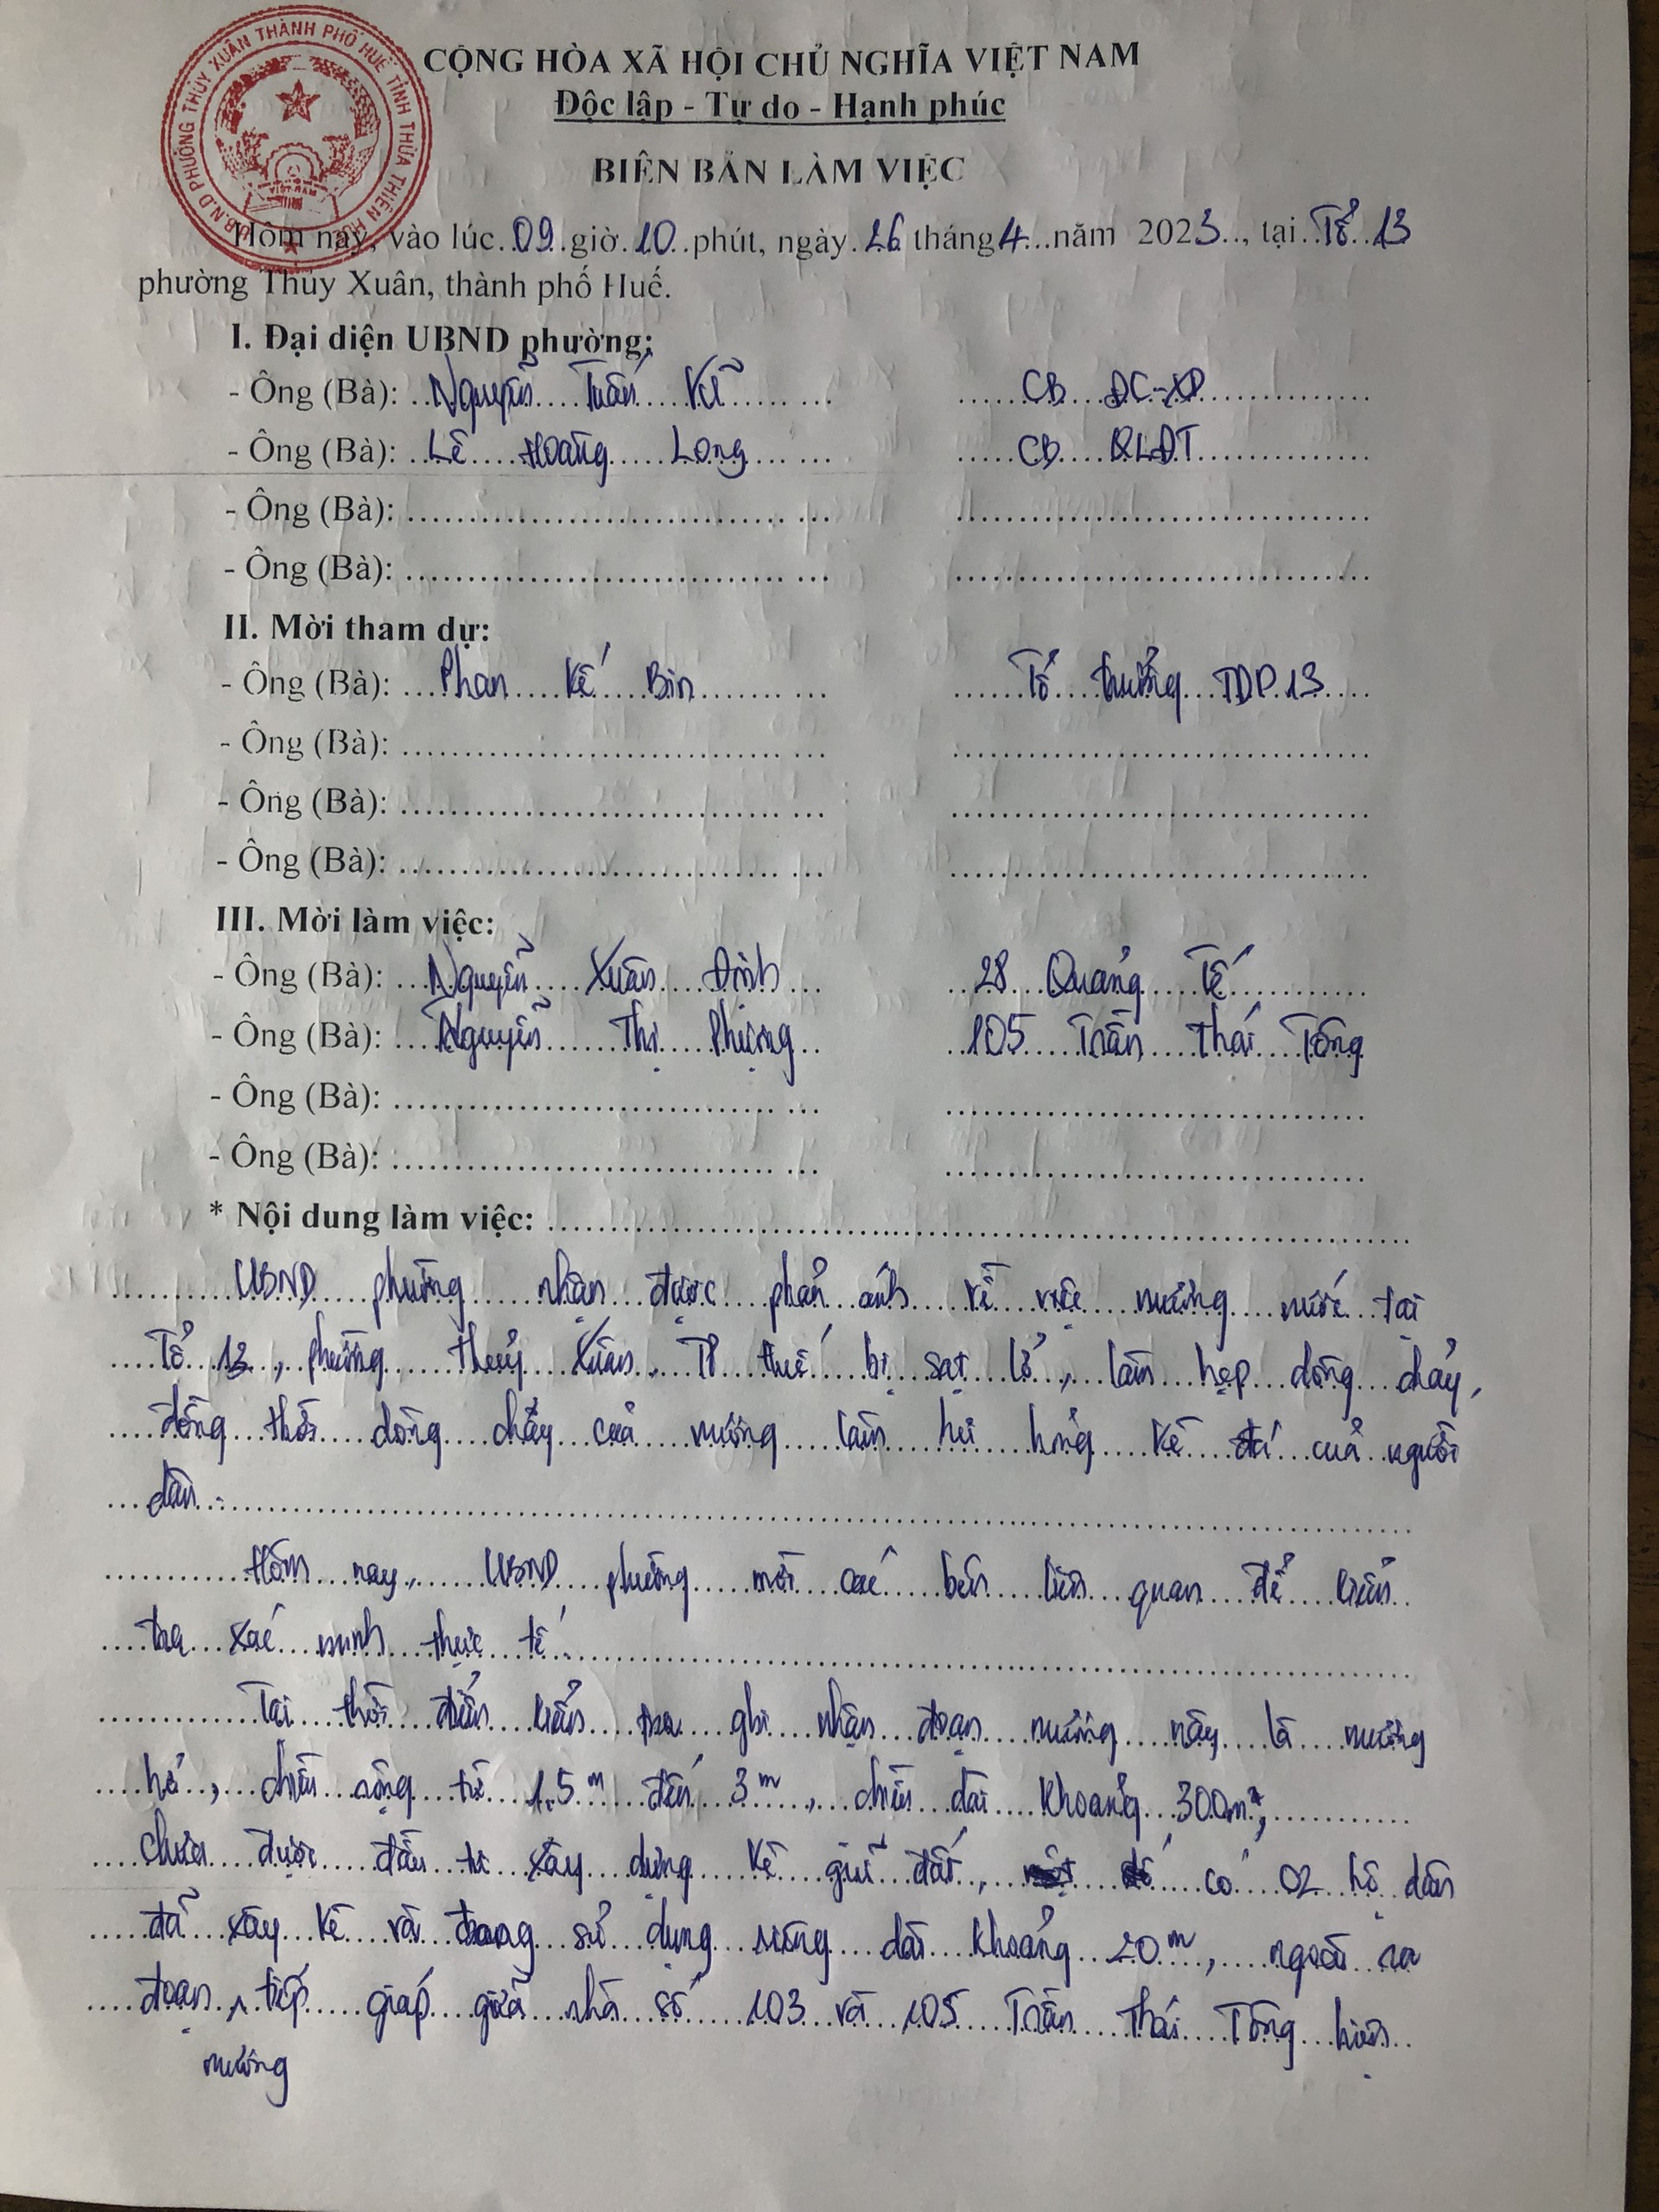 U.B.N.D PHƯỜNG THỦY XUÂN THÀNH PHỐ HUẾ TỈNH THỪA THIÊN HUẾ
VIỆT NAM
CỘNG HÒA XÃ HỘI CHỦ NGHĨA VIỆT NAM
Độc lập - Tự do - Hạnh phúc
BIÊN BẢN LÀM VIỆC
Hôm nay, vào lúc 09 giờ 10 phút, ngày 26 tháng 4 năm 2023, tại Tổ 13
phường Thủy Xuân, thành phố Huế.
I. Đại diện UBND phường:
- Ông (Bà): Nguyễn Tuấn Vũ CB ĐC-XD
- Ông (Bà): Lê Hoàng Long CB QLĐT
- Ông (Bà):
- Ông (Bà):
II. Mời tham dự:
- Ông (Bà): Phan Kế Bin Tổ trưởng TDP 13
- Ông (Bà):
- Ông (Bà):
- Ông (Bà):
III. Mời làm việc:
- Ông (Bà): Nguyễn Xuân Định 28 Quảng Tế
- Ông (Bà): Nguyễn Thị Phượng 105 Trần Thái Tông
- Ông (Bà):
- Ông (Bà):
* Nội dung làm việc:
UBND phường nhận được phản ánh về việc mương nước tại
Tổ 13, phường Thuỷ Xuân, TP Huế bị sạt lở, làm hẹp dòng chảy,
đồng thời dòng chảy của mương làm hư hỏng kè đá của người
dân.
Hôm nay, UBND phường mời các bên liên quan để kiểm
tra xác minh thực tế.
Tại thời điểm kiểm tra ghi nhận đoạn mương này là mương
hở, chiều rộng từ 1.5m đến 3m, chiều dài khoảng 300m,
chưa được đầu tư xây dựng kè giữ đất, có 02 hộ dân
đã xây kè và đang sử dụng riêng dài khoảng 20m, ngoài ra
đoạn mương tiếp giáp giữa nhà số 103 và 105 Trần Thái Tông hiện